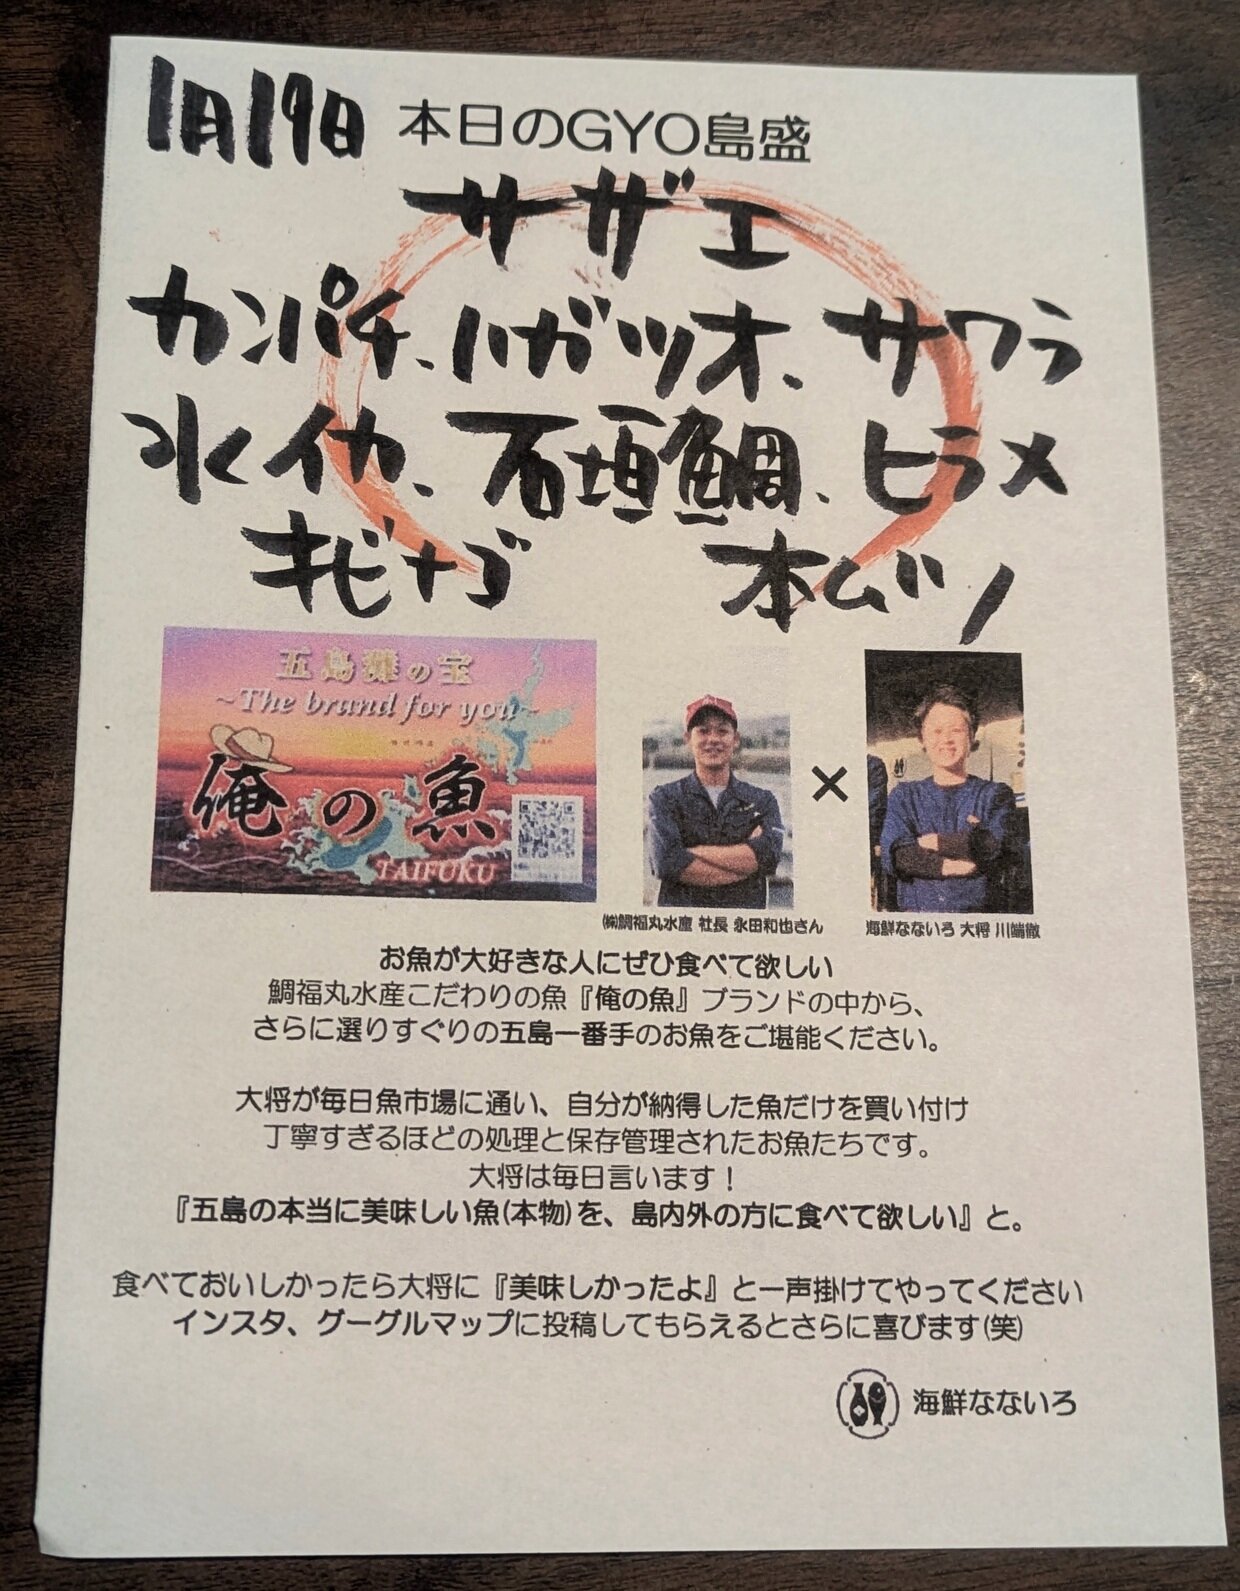 1月19日 本日のGYO島盛
サザエ
カンパチ、ハガツオ、サワラ
水イカ、石垣鯛、ヒラメ
キビナゴ 本ムツ
五島灘の宝
~The brand for you~
俺の魚
TAIFUKU
×
㈱鯛福丸水産 社長 永田和也さん
海鮮なないろ 大将 川端徹
お魚が大好きな人にぜひ食べて欲しい
鯛福丸水産こだわりの魚『俺の魚』ブランドの中から、
さらに選りすぐりの五島一番手のお魚をご堪能ください。
大将が毎日魚市場に通い、自分が納得した魚だけを買い付け
丁寧すぎるほどの処理と保存管理されたお魚たちです。
大将は毎日言います！
『五島の本当に美味しい魚(本物)を、島内外の方に食べて欲しい』と。
食べておいしかったら大将に『美味しかったよ』と一声掛けてやってください
インスタ、グーグルマップに投稿してもらえるとさらに喜びます(笑)
海鮮なないろ